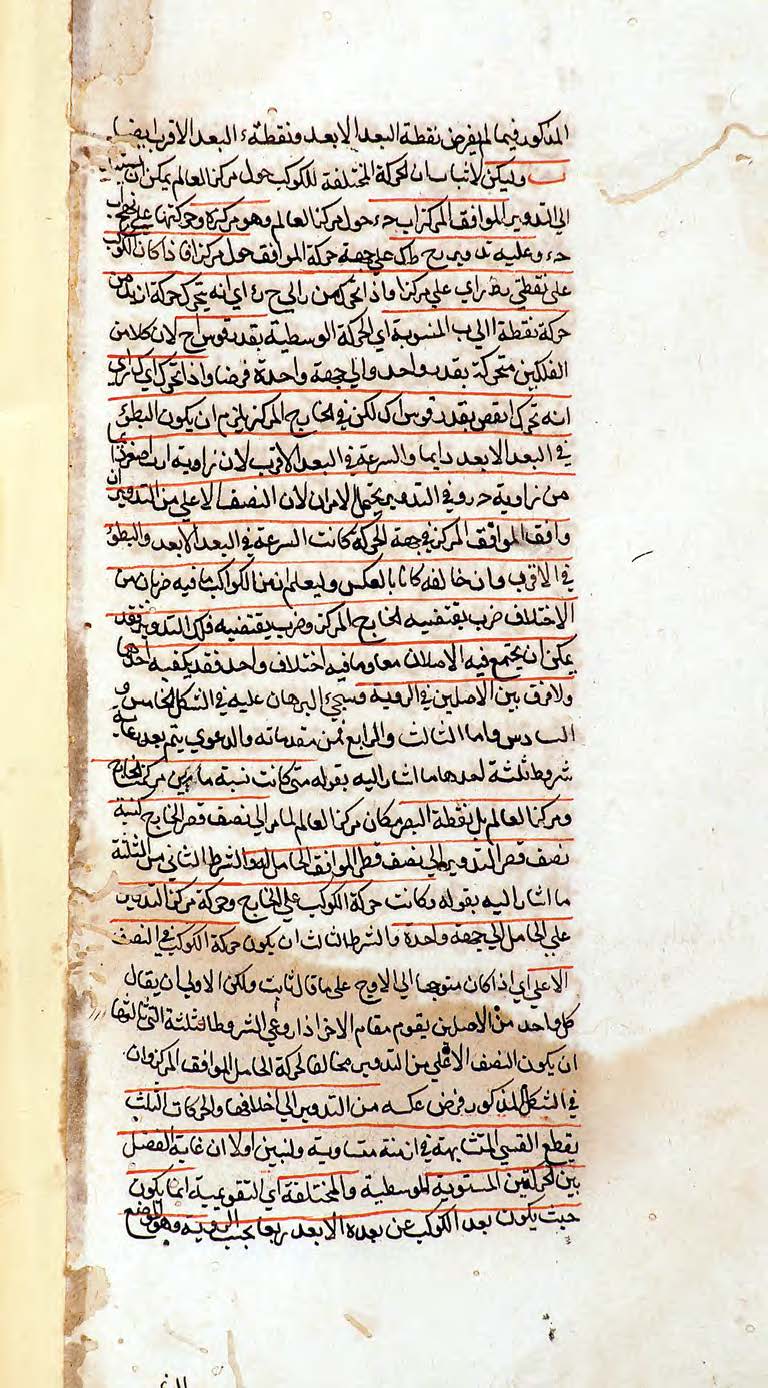 المذكور فيما لم يفرض نقطة البعد الابعد ونقطة ء البعد الاقرب ايضا
وليكن لاثبات ان الحركة المختلفة للكوكب حول مركز العالم يمكن ان
الي التدوير الموافق المركز اب حء حول مركز العالم وهو مركزه وحركتها علي
حء وعليه تدوير رح طك علي جهة حركة الموافق حول مركز ا فاذا كان الكوكب
علي نقطتي اي علي مركز ا واذا تحرك من ر الي ح اي انه يتحرك حركة ازيد من
حركة نقطة ا الي ب المنسوبة اي الحركة الوسطية بقدر قوس اح لان كلا من
الفلكين متحركة بقدر واحد والي جهة واحدة فرضا واذا تحرك الي ك اي
انه تحرك انقص بقدر قوس اك لكن في الخارج المركز يلزم ان يكون البطؤ
في البعد الابعد دايما والسرعة في البعد الاقرب لان زاوية ارب اصغر
من زاوية حرء وفي التدوير يحتمل الامران لان النصف الاعلي من التدوير ان
وافق الموافق المركز في جهة الحركة كانت السرعة في البعد الابعد والبطؤ
في الاقرب وان خالفه كانا بالعكس وليعلم ان من الكواكب ما فيه ضربان من
الاختلاف ضرب يقتضيه الخارج المركز وضرب يقتضيه فلك التدوير فقد
يمكن ان يجتمع فيه الاصلان معا وما فيه اختلاف واحد فقد يكفيه احدهما
ولا فرق بين الاصلين في الروية وسيجئ البرهان عليه في الشكل الخامس و
السادس واما الثالث والرابع فمن مقدماته والدعوي يتم بعد
شروط ثلثة احدها ما اشار اليه بقوله متي كانت نسبة ما بين مركز الخارج
ومركز العالم بل نقطة البصر مكان مركز العالم لما مر الي نصف قطر الخارج كنسبة
نصف قطر التدوير الي نصف قطر الموافق الحامل له والشرط الثاني من الثلثة
ما اشار اليه بقوله وكانت حركة الكوكب علي الخارج وحركة مركز التدوير
علي الحامل الي جهة واحدة والشرط الثالث ان يكون حركة الكوكب في النصف
الاعلي اي اذا كان متوجها الي الاوج علي ما قال ثابت ولكن الاولي ان يقال
كل واحد من الاصلين يقوم مقام الاخر اذا روعي الشروط الثلثة التي ثالثها
ان يكون النصف الاعلي من التدوير مخالفا لحركة الحامل الموافق المركز وان
في الشكل المذكور فرض عكسه من التدوير الي اخلافها والحركات الثلث
يقطع القسي المتشابهة في ازمنة متساوية ولنبين اولا ان غاية الفضل
بين الحركتين المستوية الوسطية والمختلفة اي التقويمية انما يكون
حيث يكون بعد الكوكب عن بعده الابعد ربعا بحسب الروية وهو الموضع